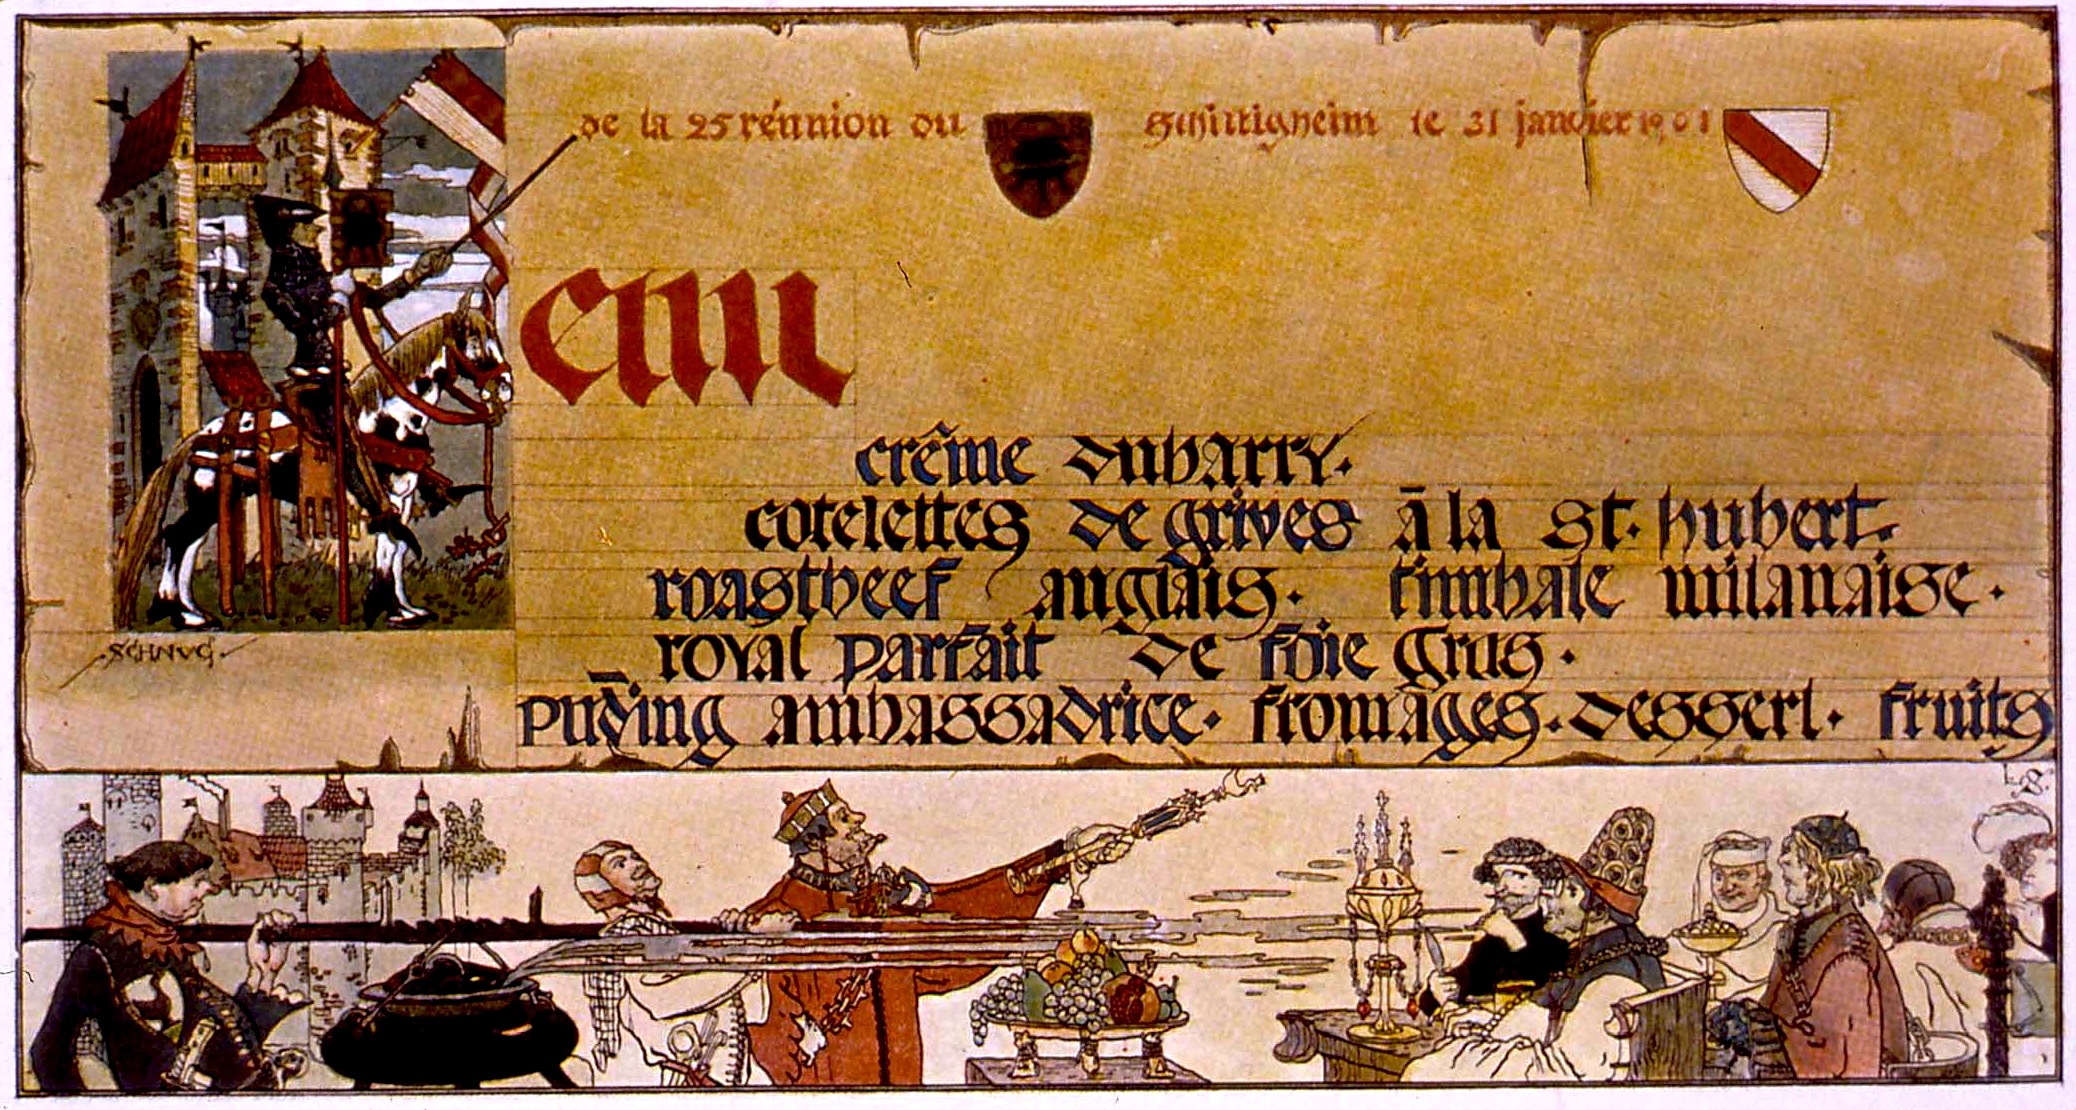 de la 25 rénnion du Schiltigheim le 31 janvier 1901
enu
crème dubarry.
cotelettes de grives à la St. hubert.
roastbeef anglais. timbale milanaise.
royal parfait de foie gras.
puding ambassadrice. fromages. dessert. fruits
SCHNUG.